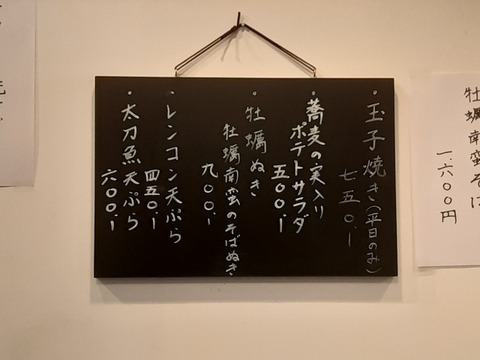 牡蠣南蛮そば
一、六〇〇円
・玉子焼き(平日のみ)
七五〇、-
・蕎麦の実入り
ポテトサラダ
五〇〇、-
・牡蠣ぬき
牡蠣南蛮のそばぬき
九〇〇、-
・レンコン天ぷら
四五〇、-
・太刀魚天ぷら
六〇〇、-